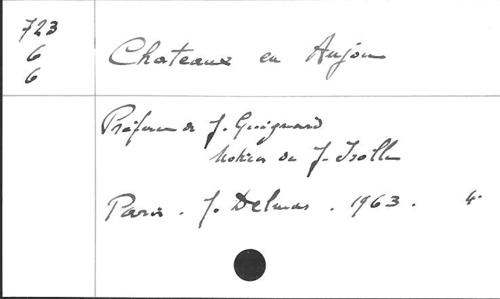 723
6
6
Chateaux en Anjou
Préface de J. Guignard
Notices de J. Isolle
Paris . J. Delmas . 1963 . 4°